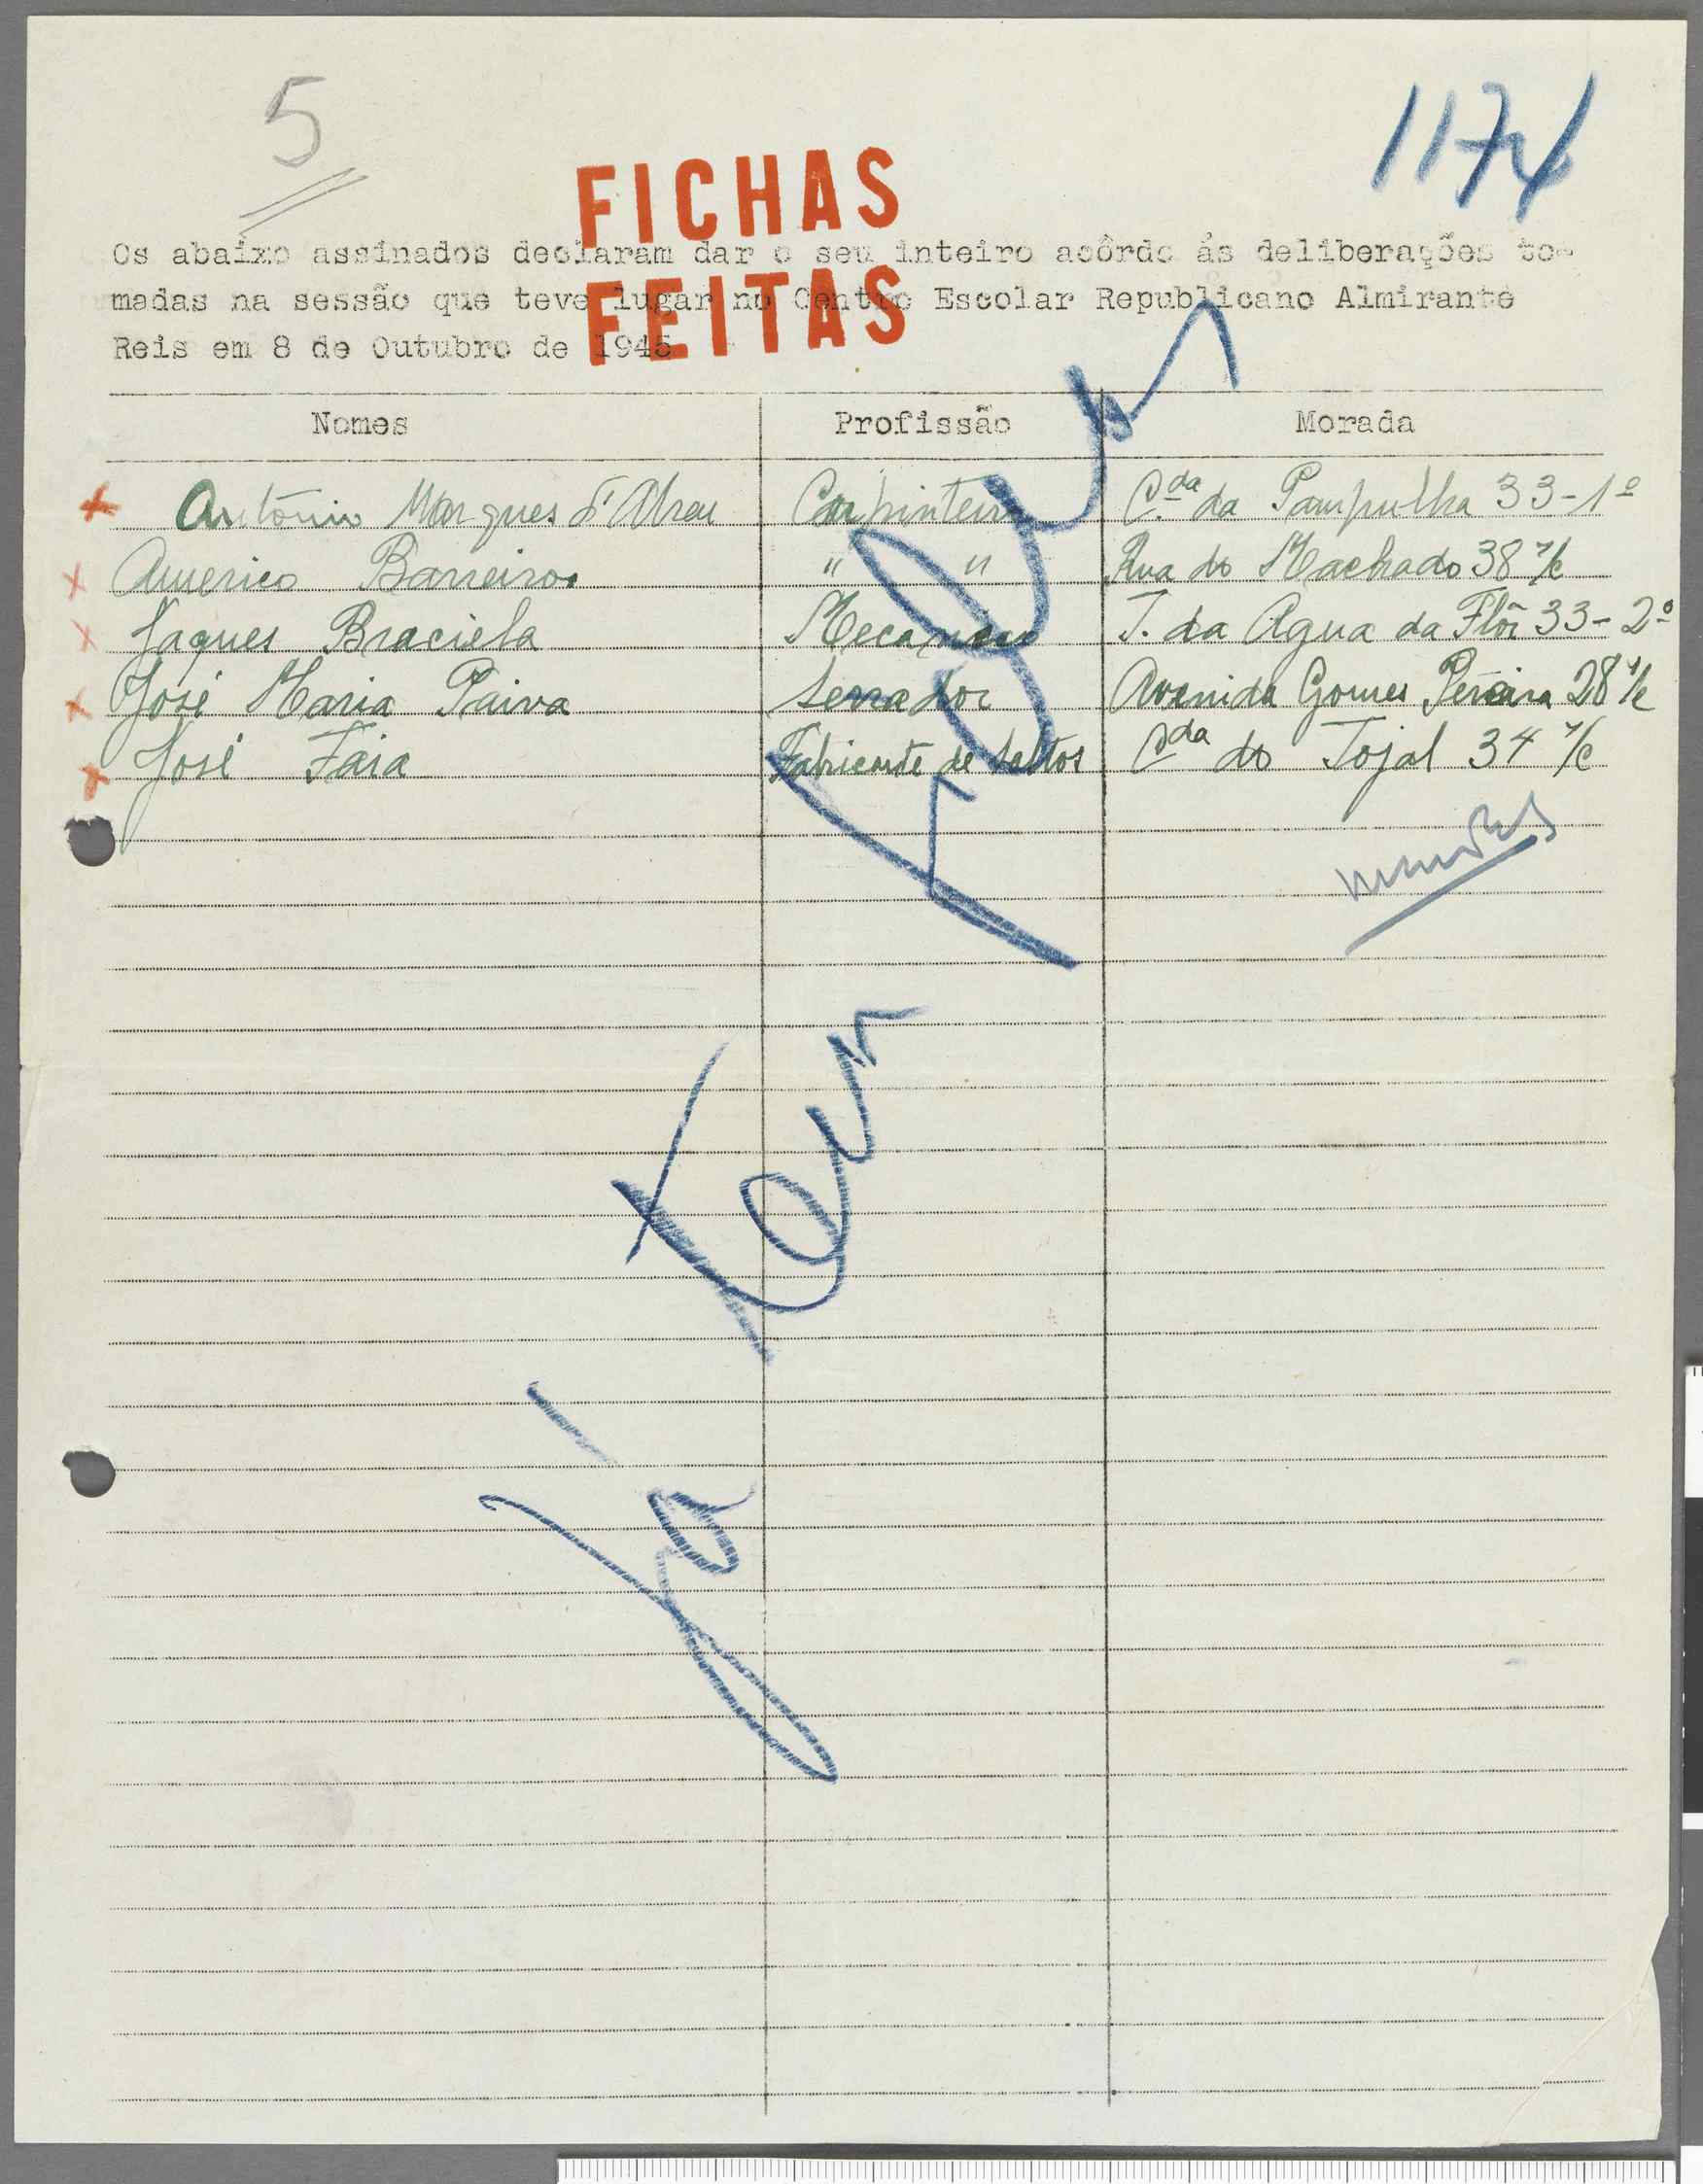 5
1174
FICHAS
FEITAS
Os abaixo assinados declaram dar o seu inteiro acôrdo ás deliberações to-
madas na sessão que teve lugar no Centro Escolar Republicano Almirante
Reis em 8 de Outubro de 1945
Nomes Profissão Morada
x António Marques d'Abreu Carpinteiro C.da da Pampulha 33-1º
x Americo Barreiros " " Rua do Machado 38 r/c
x Jaques Braciela Mecanico T. da Agua da Flôr 33-2º
x José Maria Paiva Serrador Avenida Gomes Pereira 28 r/c
x José Faia Fabricante de Saltos C.da do Tojal 34 r/c
Já tem